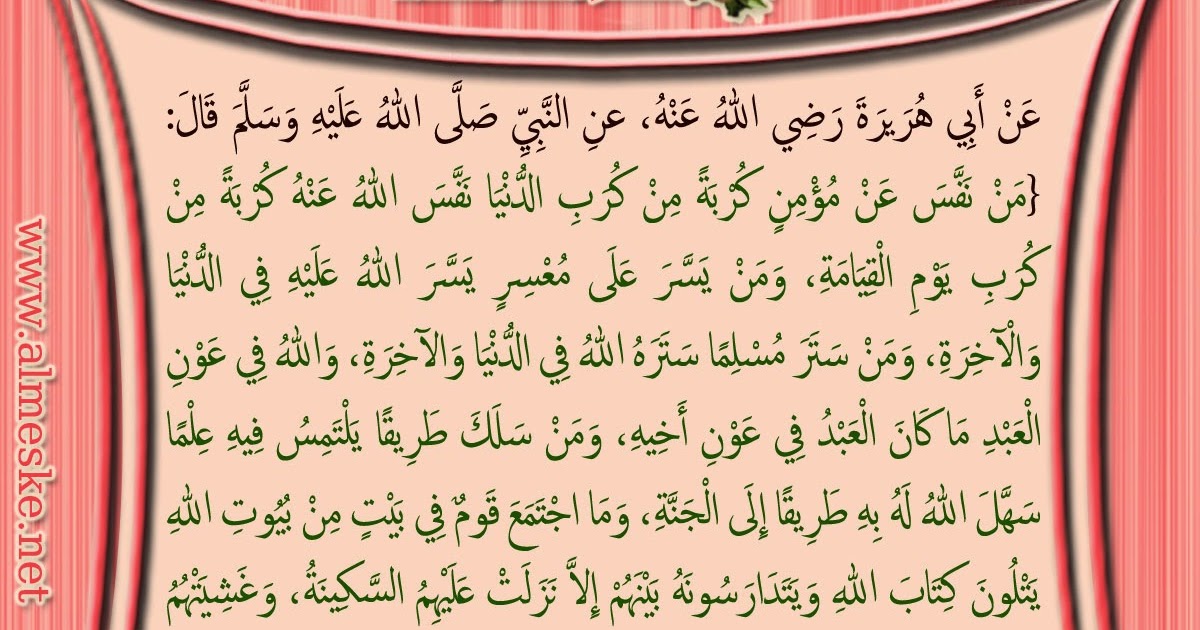 عَنْ أَبِي هُرَيرَةَ رَضِي اللهُ عَنْهُ، عنِ النَّبِيِّ صَلَّى اللهُ عَلَيْهِ وَسَلَّمَ قَالَ:
{مَنْ نَفَّسَ عَنْ مُؤْمِنٍ كُرْبَةً مِنْ كُرَبِ الدُّنْيَا نَفَّسَ اللهُ عَنْهُ كُرْبَةً مِنْ
كُرَبِ يَوْمِ الْقِيَامَةِ، وَمَنْ يَسَّرَ عَلَى مُعْسِرٍ يَسَّرَ اللهُ عَلَيْهِ فِي الدُّنْيَا
وَالْآخِرَةِ، وَمَنْ سَتَرَ مُسْلِمًا سَتَرَهُ اللهُ فِي الدُّنْيَا وَالآخِرَةِ، وَاللهُ فِي عَوْنِ
الْعَبْدِ مَا كَانَ الْعَبْدُ فِي عَوْنِ أَخِيهِ، وَمَنْ سَلَكَ طَرِيقًا يَلْتَمِسُ فِيهِ عِلْمًا
سَهَّلَ اللهُ لَهُ بِهِ طَرِيقًا إِلَى الْجَنَّةِ، وَمَا اجْتَمَعَ قَومٌ فِي بَيْتٍ مِنْ بُيُوتِ اللهِ
يَتْلُونَ كِتَابَ اللهِ وَيَتَدَارَسُونَهُ بَيْنَهُمْ إِلاَّ نَزَلَتْ عَلَيْهِمُ السَّكِينَةُ، وَغَشِيَتْهُمُ
www.almeske.net